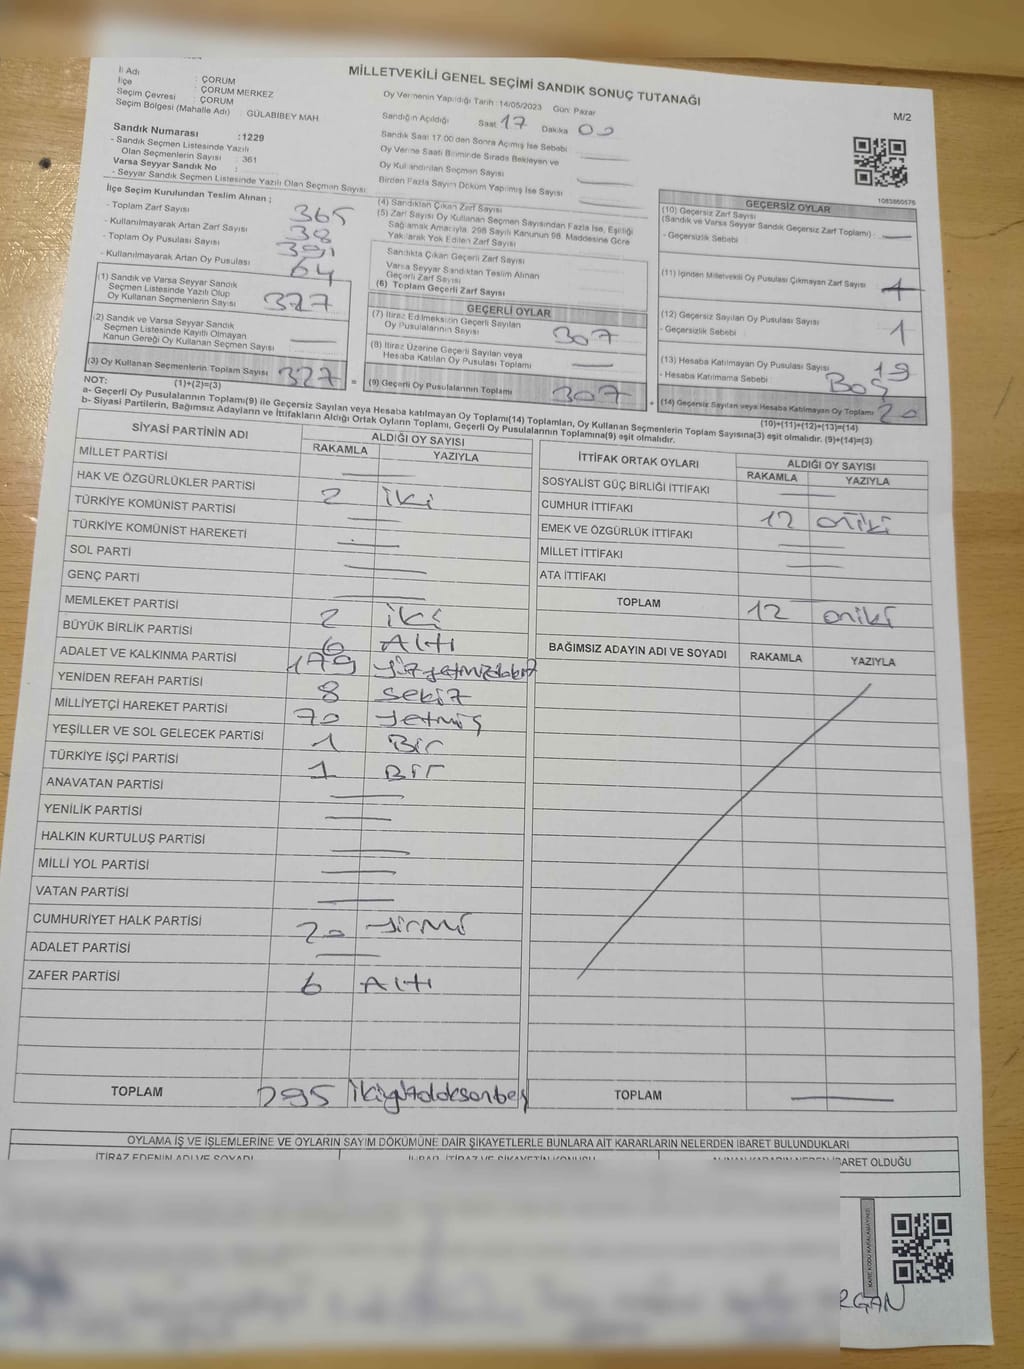 MİLLETVEKİLİ GENEL SEÇİMİ SANDIK SONUÇ TUTANAĞI
M/2
İl Adı : ÇORUM
İlçe : ÇORUM MERKEZ
Seçim Çevresi : ÇORUM
Seçim Bölgesi (Mahalle Adı) : GÜLABİBEY MAH.
Sandık Numarası : 1229
- Sandık Seçmen Listesinde Yazılı
Olan Seçmenlerin Sayısı : 361
Varsa Seyyar Sandık No :
- Seyyar Sandık Seçmen Listesinde Yazılı Olan Seçmen Sayısı:
Oy Vermenin Yapıldığı Tarih : 14/05/2023 Gün: Pazar
Sandığın Açıldığı Saat 17 Dakika 00
Sandık Saat 17.00'den Sonra Açılmış İse Sebebi
Oy Verme Saati Bitiminde Sırada Bekleyen ve
Oy Kullandırılan Seçmen Sayısı
Birden Fazla Sayım Döküm Yapılmış İse Sayısı
1083860576
İlçe Seçim Kurulundan Teslim Alınan ;
- Toplam Zarf Sayısı 365
- Kullanılmayarak Artan Zarf Sayısı 38
- Toplam Oy Pusulası Sayısı 391
- Kullanılmayarak Artan Oy Pusulası 64
(1) Sandık ve Varsa Seyyar Sandık
Seçmen Listesinde Yazılı Olup
Oy Kullanan Seçmenlerin Sayısı 327
(2) Sandık ve Varsa Seyyar Sandık
Seçmen Listesinde Kayıtlı Olmayan
Kanun Gereği Oy Kullanan Seçmen Sayısı
(3) Oy Kullanan Seçmenlerin Toplam Sayısı 327 =
(1)+(2)=(3)
(4) Sandıktan Çıkan Zarf Sayısı
(5) Zarf Sayısı Oy Kullanan Seçmen Sayısından Fazla İse, Eşitliği
Sağlamak Amacıyla, 298 Sayılı Kanunun 98. Maddesine Göre
Yakılarak Yok Edilen Zarf Sayısı
Sandıkta Çıkan Geçerli Zarf Sayısı
Varsa Seyyar Sandıktan Teslim Alınan
Geçerli Zarf Sayısı
(6) Toplam Geçerli Zarf Sayısı
GEÇERLİ OYLAR
(7) İtiraz Edilmeksizin Geçerli Sayılan
Oy Pusulalarının Sayısı 307
(8) İtiraz Üzerine Geçerli Sayılan veya
Hesaba Katılan Oy Pusulası Toplamı
(9) Geçerli Oy Pusulalarının Toplamı 307 +
GEÇERSİZ OYLAR
(10) Geçersiz Zarf Sayısı
(Sandık ve Varsa Seyyar Sandık Geçersiz Zarf Toplamı)
- Geçersizlik Sebebi
(11) İçinden Milletvekili Oy Pusulası Çıkmayan Zarf Sayısı
(12) Geçersiz Sayılan Oy Pusulası Sayısı 1
- Geçersizlik Sebebi
(13) Hesaba Katılmayan Oy Pusulası Sayısı 19
- Hesaba Katılmama Sebebi Boş
(14) Geçersiz Sayılan veya Hesaba Katılmayan Oy Toplamı 20
(10)+(11)+(12)+(13)=(14)
NOT:
a- Geçerli Oy Pusulalarının Toplamı(9) ile Geçersiz Sayılan veya Hesaba katılmayan Oy Toplamı(14) Toplamları, Oy Kullanan Seçmenlerin Toplam Sayısına(3) eşit olmalıdır. (9)+(14)=(3)
b- Siyasi Partilerin, Bağımsız Adayların ve İttifakların Aldığı Ortak Oyların Toplamı, Geçerli Oy Pusulalarının Toplamına(9) eşit olmalıdır.
SİYASİ PARTİNİN ADI ALDIĞI OY SAYISI
RAKAMLA YAZIYLA
MİLLET PARTİSİ
HAK VE ÖZGÜRLÜKLER PARTİSİ
TÜRKİYE KOMÜNİST PARTİSİ 2 iki
TÜRKİYE KOMÜNİST HAREKETİ
SOL PARTİ
GENÇ PARTİ
MEMLEKET PARTİSİ
BÜYÜK BİRLİK PARTİSİ 2 iki
ADALET VE KALKINMA PARTİSİ 179 yüzyetmişdokuz
6 Altı
YENİDEN REFAH PARTİSİ 8 sekiz
MİLLİYETÇİ HAREKET PARTİSİ 70 yetmiş
YEŞİLLER VE SOL GELECEK PARTİSİ 1 Bir
TÜRKİYE İŞÇİ PARTİSİ 1 Bir
ANAVATAN PARTİSİ
YENİLİK PARTİSİ
HALKIN KURTULUŞ PARTİSİ
MİLLİ YOL PARTİSİ
VATAN PARTİSİ
CUMHURİYET HALK PARTİSİ 20 yirmi
ADALET PARTİSİ
ZAFER PARTİSİ 6 Altı
TOPLAM 295 ikiyüzdoksanbeş
İTTİFAK ORTAK OYLARI ALDIĞI OY SAYISI
RAKAMLA YAZIYLA
SOSYALİST GÜÇ BİRLİĞİ İTTİFAKI
CUMHUR İTTİFAKI 12 oniki
EMEK VE ÖZGÜRLÜK İTTİFAKI
MİLLET İTTİFAKI
ATA İTTİFAKI
TOPLAM 12 oniki
BAĞIMSIZ ADAYIN ADI VE SOYADI RAKAMLA YAZIYLA
TOPLAM
OYLAMA İŞ VE İŞLEMLERİNE VE OYLARIN SAYIM DÖKÜMÜNE DAİR ŞİKAYETLERLE BUNLARA AİT KARARLARIN NELERDEN İBARET BULUNDUKLARI
İTİRAZ EDENİN ADI VE SOYADI
İBARET OLDUĞU
RGAN